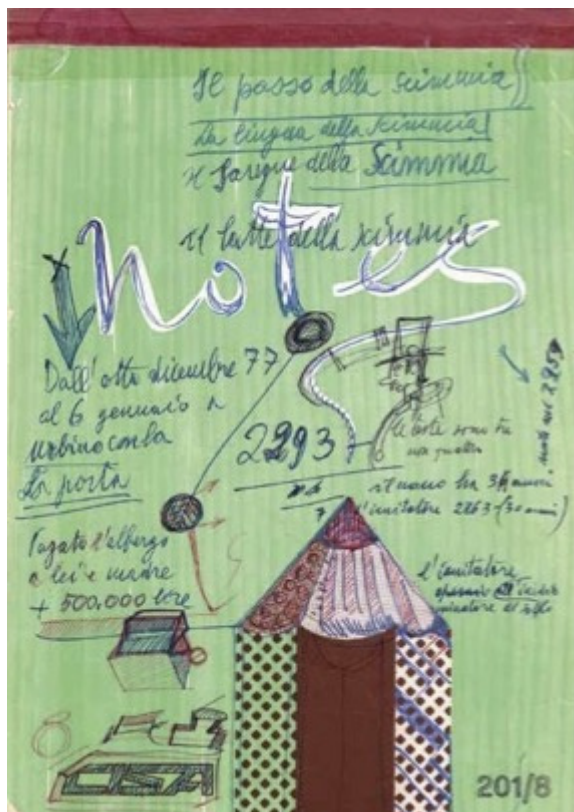 Il passo della scimmia
La lingua della scimmia
il Sangue della Scimmia
il latte della scimmia
Notes
Dall'otto dicembre 77
al 6 gennaio a
Urbino con la
La porta
2293
Pagato l'albergo
a lei e madre
+ 500,000 lire
il nano ha 36 anni
l'imitatore 2263 (30 anni)
l'imitatore
CISA
201/8